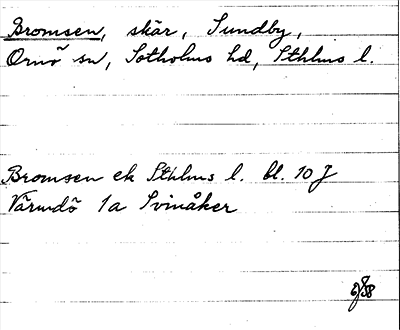 Bromsen, skär, Sundby,
Ornö sn, Sotholms hd, Sthlms l.
Bromsen ek Sthlms l. bl. 10 J
Värmdö 1a Svinåker